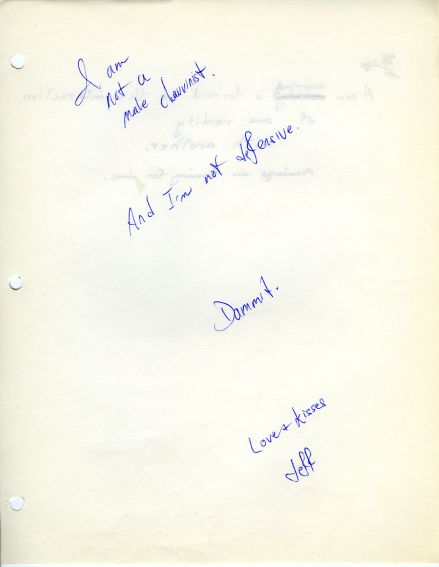 I am
not a
male chauvinist.
And I'm not defensive.
Dammit.
Love + kisses
Jeff